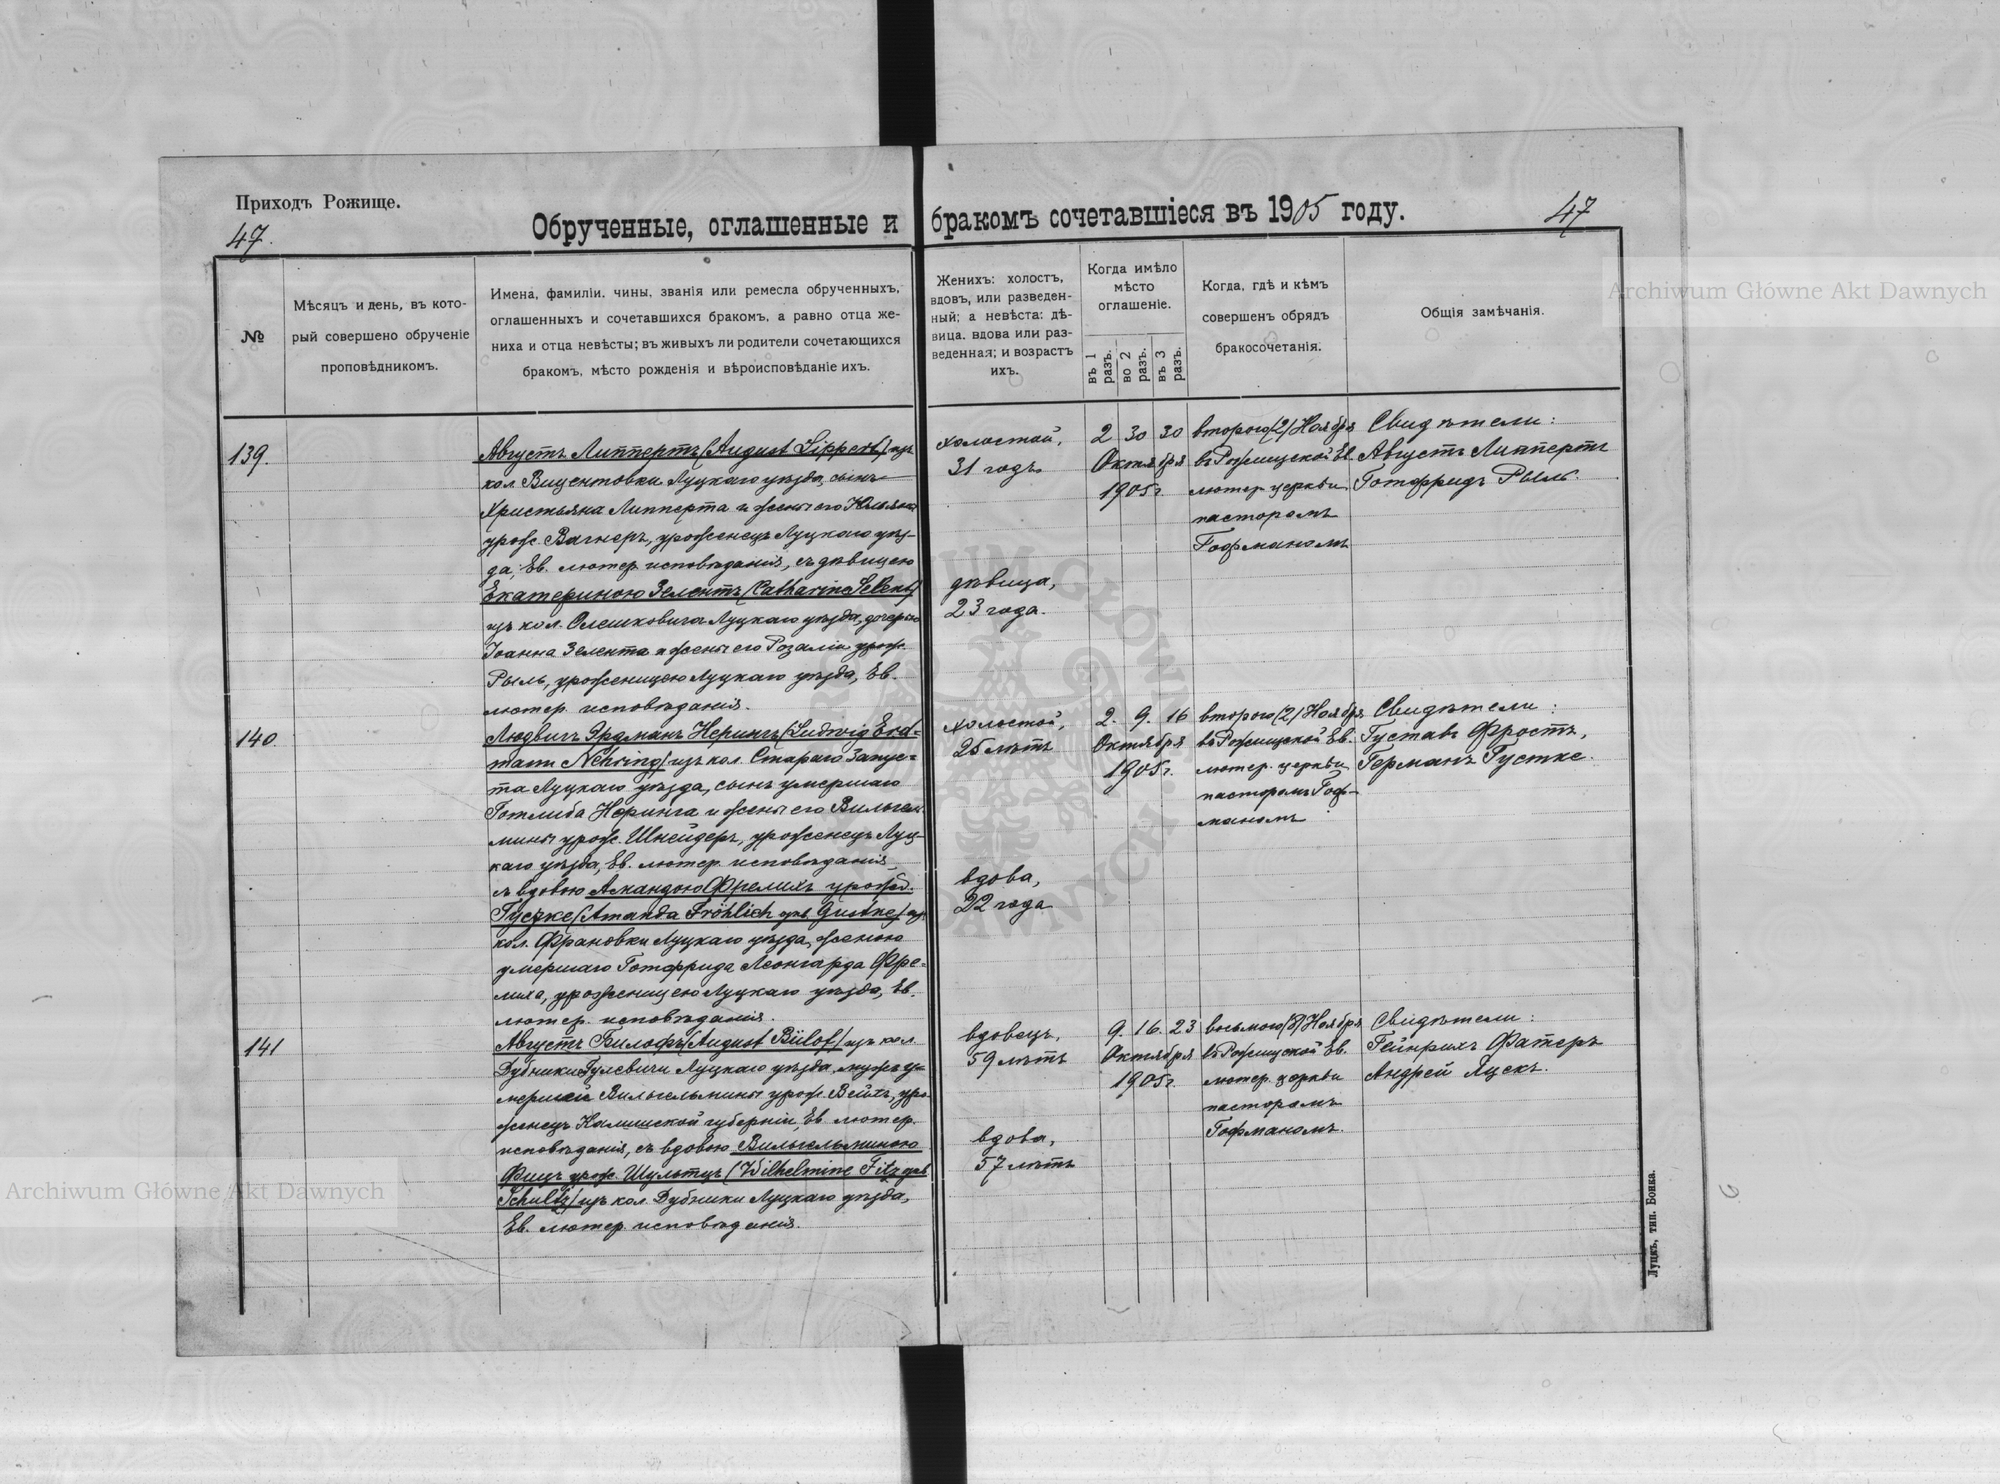 Приходъ Рожище.
47.
Обрученные, оглашенные и бракомъ сочетавшіеся въ 1905 году.
47
№
Мѣсяцъ и день, въ кото-
рый совершено обрученіе
проповѣдникомъ.
Имена, фамиліи, чины, званія или ремесла обрученныхъ,
оглашенныхъ и сочетавшихся бракомъ, а равно отца же-
ниха и отца невѣсты; въ живыхъ ли родители сочетающихся
бракомъ, мѣсто рожденія и вѣроисповѣданіе ихъ.
Женихъ: холостъ,
вдовъ, или разведен-
ный; а невѣста: дѣ-
вица, вдова или раз-
веденная; и возрастъ
ихъ.
Когда имѣло
мѣсто
оглашеніе.
въ 1 разъ.
во 2 разъ.
въ 3 разъ.
Когда, гдѣ и кѣмъ
совершенъ обрядъ
бракосочетанія.
Общія замѣчанія.
139.
Августъ Липпертъ (August Lippert) изъ
кол. Вицентовки Луцкаго уѣзда, сынъ
Христьяна Липперта и жены его Юльяны
урож. Вагнеръ, уроженецъ Луцкаго уѣз-
да, Ев. лютер. исповѣданія, съ дѣвицею
Екатериною Зелентъ (Catharina Selent)
изъ кол. Олешковича Луцкаго уѣзда, дочерью
Іоанна Зелента и жены его Розаліи урож.
Рыль, уроженицею Луцкаго уѣзда, Ев.
лютер. исповѣданія.
холостой,
31 годъ
дѣвица,
23 года.
2 30 30
Октября
1905 г.
второго (2) Ноября
въ Рожищской Ев.
лютер. церкви
пасторомъ
Гофманомъ
Свидѣтели:
Августъ Липпертъ
Готфридъ Рыль.
140
Людвигъ Эрдманъ Нерингъ (Ludwig Erd-
mann Nehring) изъ кол. Стараго Запус-
та Луцкаго уѣзда, сынъ умершаго
Готлиба Неринга и жены его Вильгель-
мины урож. Шнейдеръ, уроженецъ Луц-
каго уѣзда, Ев. лютер. исповѣданія,
съ вдовою Амандою Фрелихъ урожд.
Густке (Amanda Fröhlich geb. Gustke) изъ
кол. Франовки Луцкаго уѣзда, женою
умершаго Готфрида Леонгарда Фре-
лиха, уроженицею Луцкаго уѣзда, Ев.
лютер. исповѣданія.
холостой,
25 лѣтъ
вдова,
22 года
2. 9. 16
Октября
1905 г.
второго (2) Ноября
въ Рожищской Ев.
лютер. церкви
пасторомъ Гоф-
маномъ
Свидѣтели:
Густавъ Фростъ,
Германъ Густке.
141
Августъ Билофъ (August Bülof) изъ кол
Дубники Гулевичи Луцкаго уѣзда, мужъ у-
мершей Вильгельмины урож. Вейхъ, уро-
женецъ Калишской губерніи, Ев лютер.
исповѣданія, съ вдовою Вильгельминою
Фицъ урож. Шультцъ (Wilhelmine Fitz geb.
Schultz) изъ кол. Дубники Луцкаго уѣзда,
Ев. лютер. исповѣданія.
вдовецъ,
59 лѣтъ
вдова,
57 лѣтъ
9. 16. 23
Октября
1905 г.
восьмого (8) Ноября
въ Рожищской Ев.
лютер. церкви
пасторомъ
Гофманомъ.
Свидѣтели:
Гейнрихъ Фатеръ
Андрей Яцекъ.
Луцкъ, тип. Бонка.
Archiwum Główne Akt Dawnych
Archiwum Główne Akt Dawnych